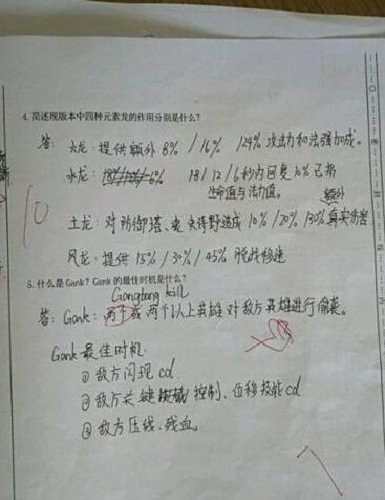 4. 简述现版本中四种元素龙的作用分别是什么?
答: 火龙: 提供额外 8% / 16% / 24% 攻击力和法强加成。
水龙: 18 / 12 / 6秒内回复10%已损
生命值与法力值。
额外
土龙: 对防御塔、史诗野怪造成 10% / 20% / 30% 真实伤害
10
风龙: 提供 15% / 30% / 45% 脱战移速
5. 什么是Gank? Gank的最佳时机是什么?
Gangbang kill
答: Gank: 两个或两个以上英雄对敌方英雄进行偷袭。
Gank最佳时机
① 敌方闪现cd
② 敌方关键 控制、位移技能cd
③ 敌方压线、残血。